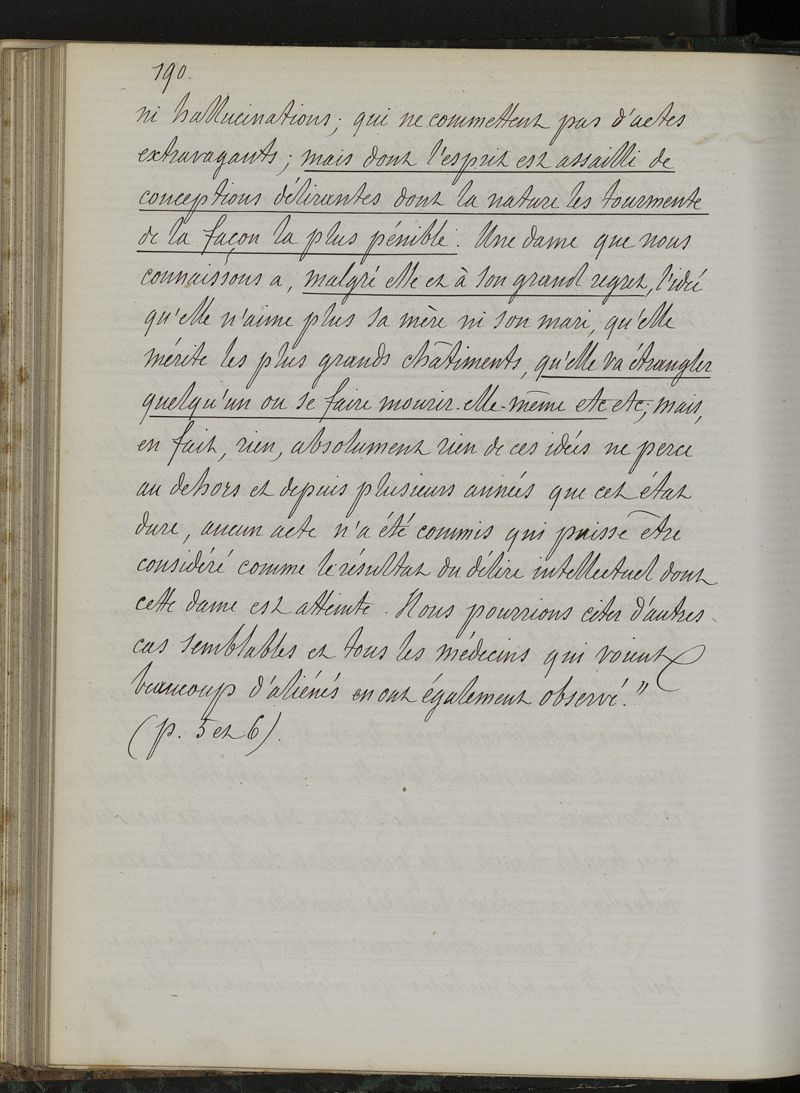 190.
ni hallucinations; qui ne commettent pas d'actes
extravagants; mais dont l'esprit est assailli de
conceptions délirantes dont la nature les tourmente
de la façon la plus pénible. Une dame que nous
connaissons a, malgré elle et à son grand regret, l'idée
qu'elle n'aime plus sa mère ni son mari, qu'elle
mérite les plus grands châtiments, qu'elle va étrangler
quelqu'un ou se faire mourir elle-même etc etc; mais,
en fait, rien, absolument rien de ces idées ne perce
au dehors et depuis plusieurs années que cet état
dure, aucun acte n'a été commis qui puisse être
considéré comme le résultat du délire intellectuel dont
cette dame est atteinte. Nous pourrions citer d'autres
cas semblables et tous les médecins qui voient
beaucoup d'aliénés en ont également observé."
(p. 5 et 6).